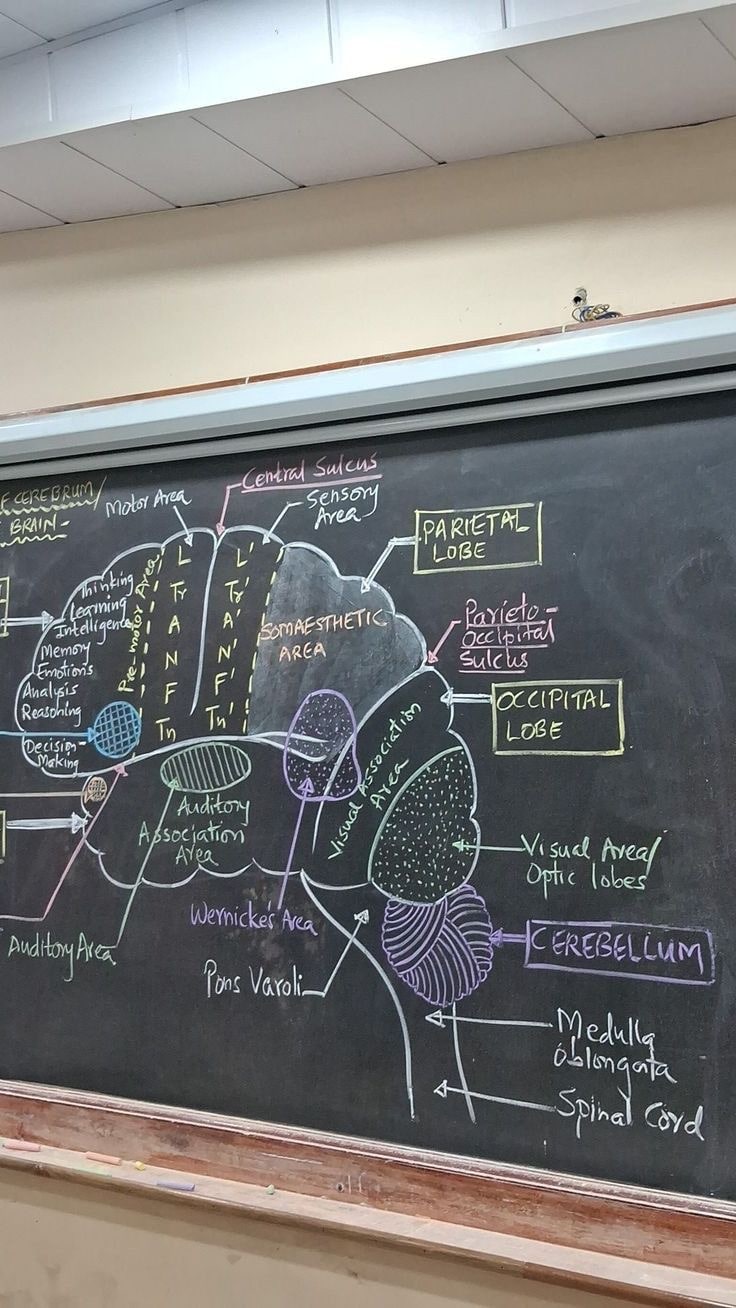 F CEREBRUM/
BRAIN-
Motor Area
Central Sulcus
Sensory
Area
PARIETAL
LOBE
Thinking
Learning
Intelligence
Memory
Emotions
Analysis
Reasoning
Decision-
Making
Pre-motor Area
L
Tr
A
N
F
Tn
L'
Tr'
A'
N'
F'
Tn'
SOMAESTHETIC
AREA
Parieto-
Occipital
Sulcus
OCCIPITAL
LOBE
Visual Association
Area
Auditory
Association
Area
Visual Area/
Optic lobes
Wernicke's Area
Auditory Area
CEREBELLUM
Pons Varoli
Medulla
Oblongata
Spinal Cord